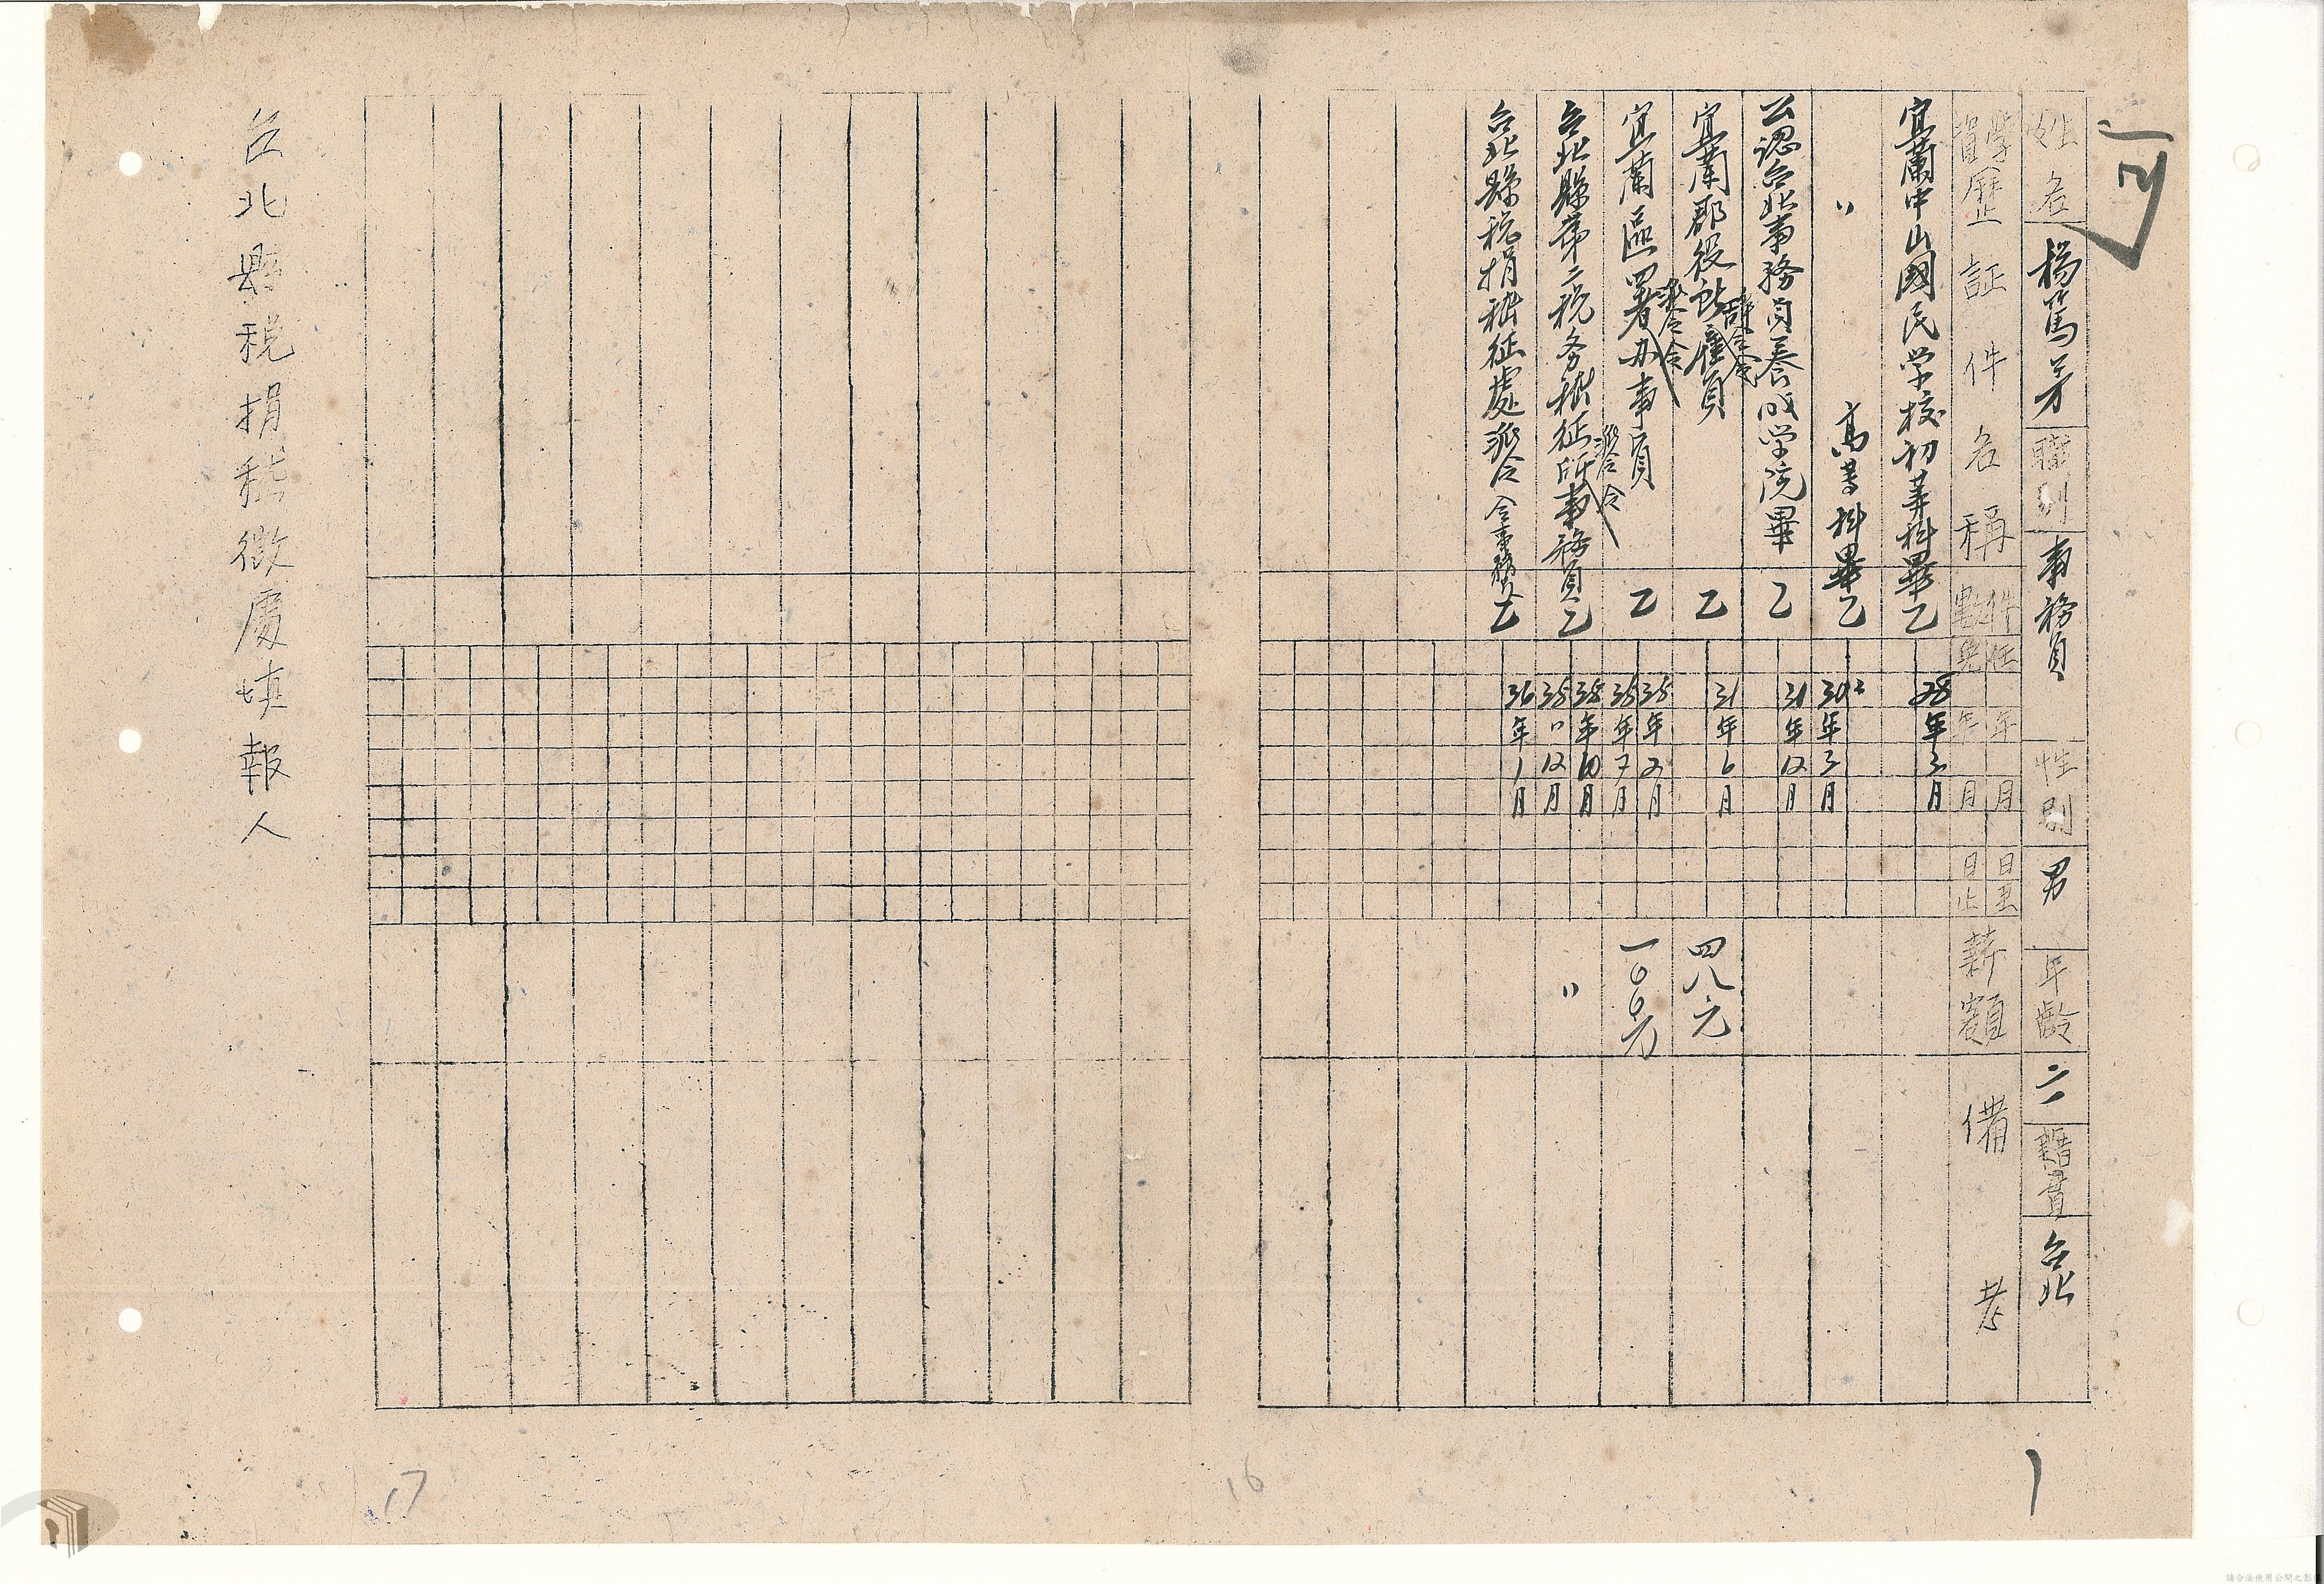 可
姓名 楊篤才 職別 事務員 性別 男 年齡 二一 籍貫 台北
學歷證件名稱 件數 任免 年月日至 年月日止 薪額 備考
宜蘭中山國民学校初等科畢 乙 28年3月
〃 高等科畢 乙 30年3月
公認台北事務員養成学院畢 乙 31年12月
宜蘭郡役所雇員 辞令 乙 31年6月 四八元
宜蘭區署办事員 派令 乙 35年2月 35年7月 一〇〇元
台北縣第二税务稽征所事務員 派令 乙 35年10月 35〃12月 〃
台北縣税捐稽征處派令 令事務員 乙 36年1月
台北縣税捐稽徵處填報人
1
16
17
請合法使用公開之影像